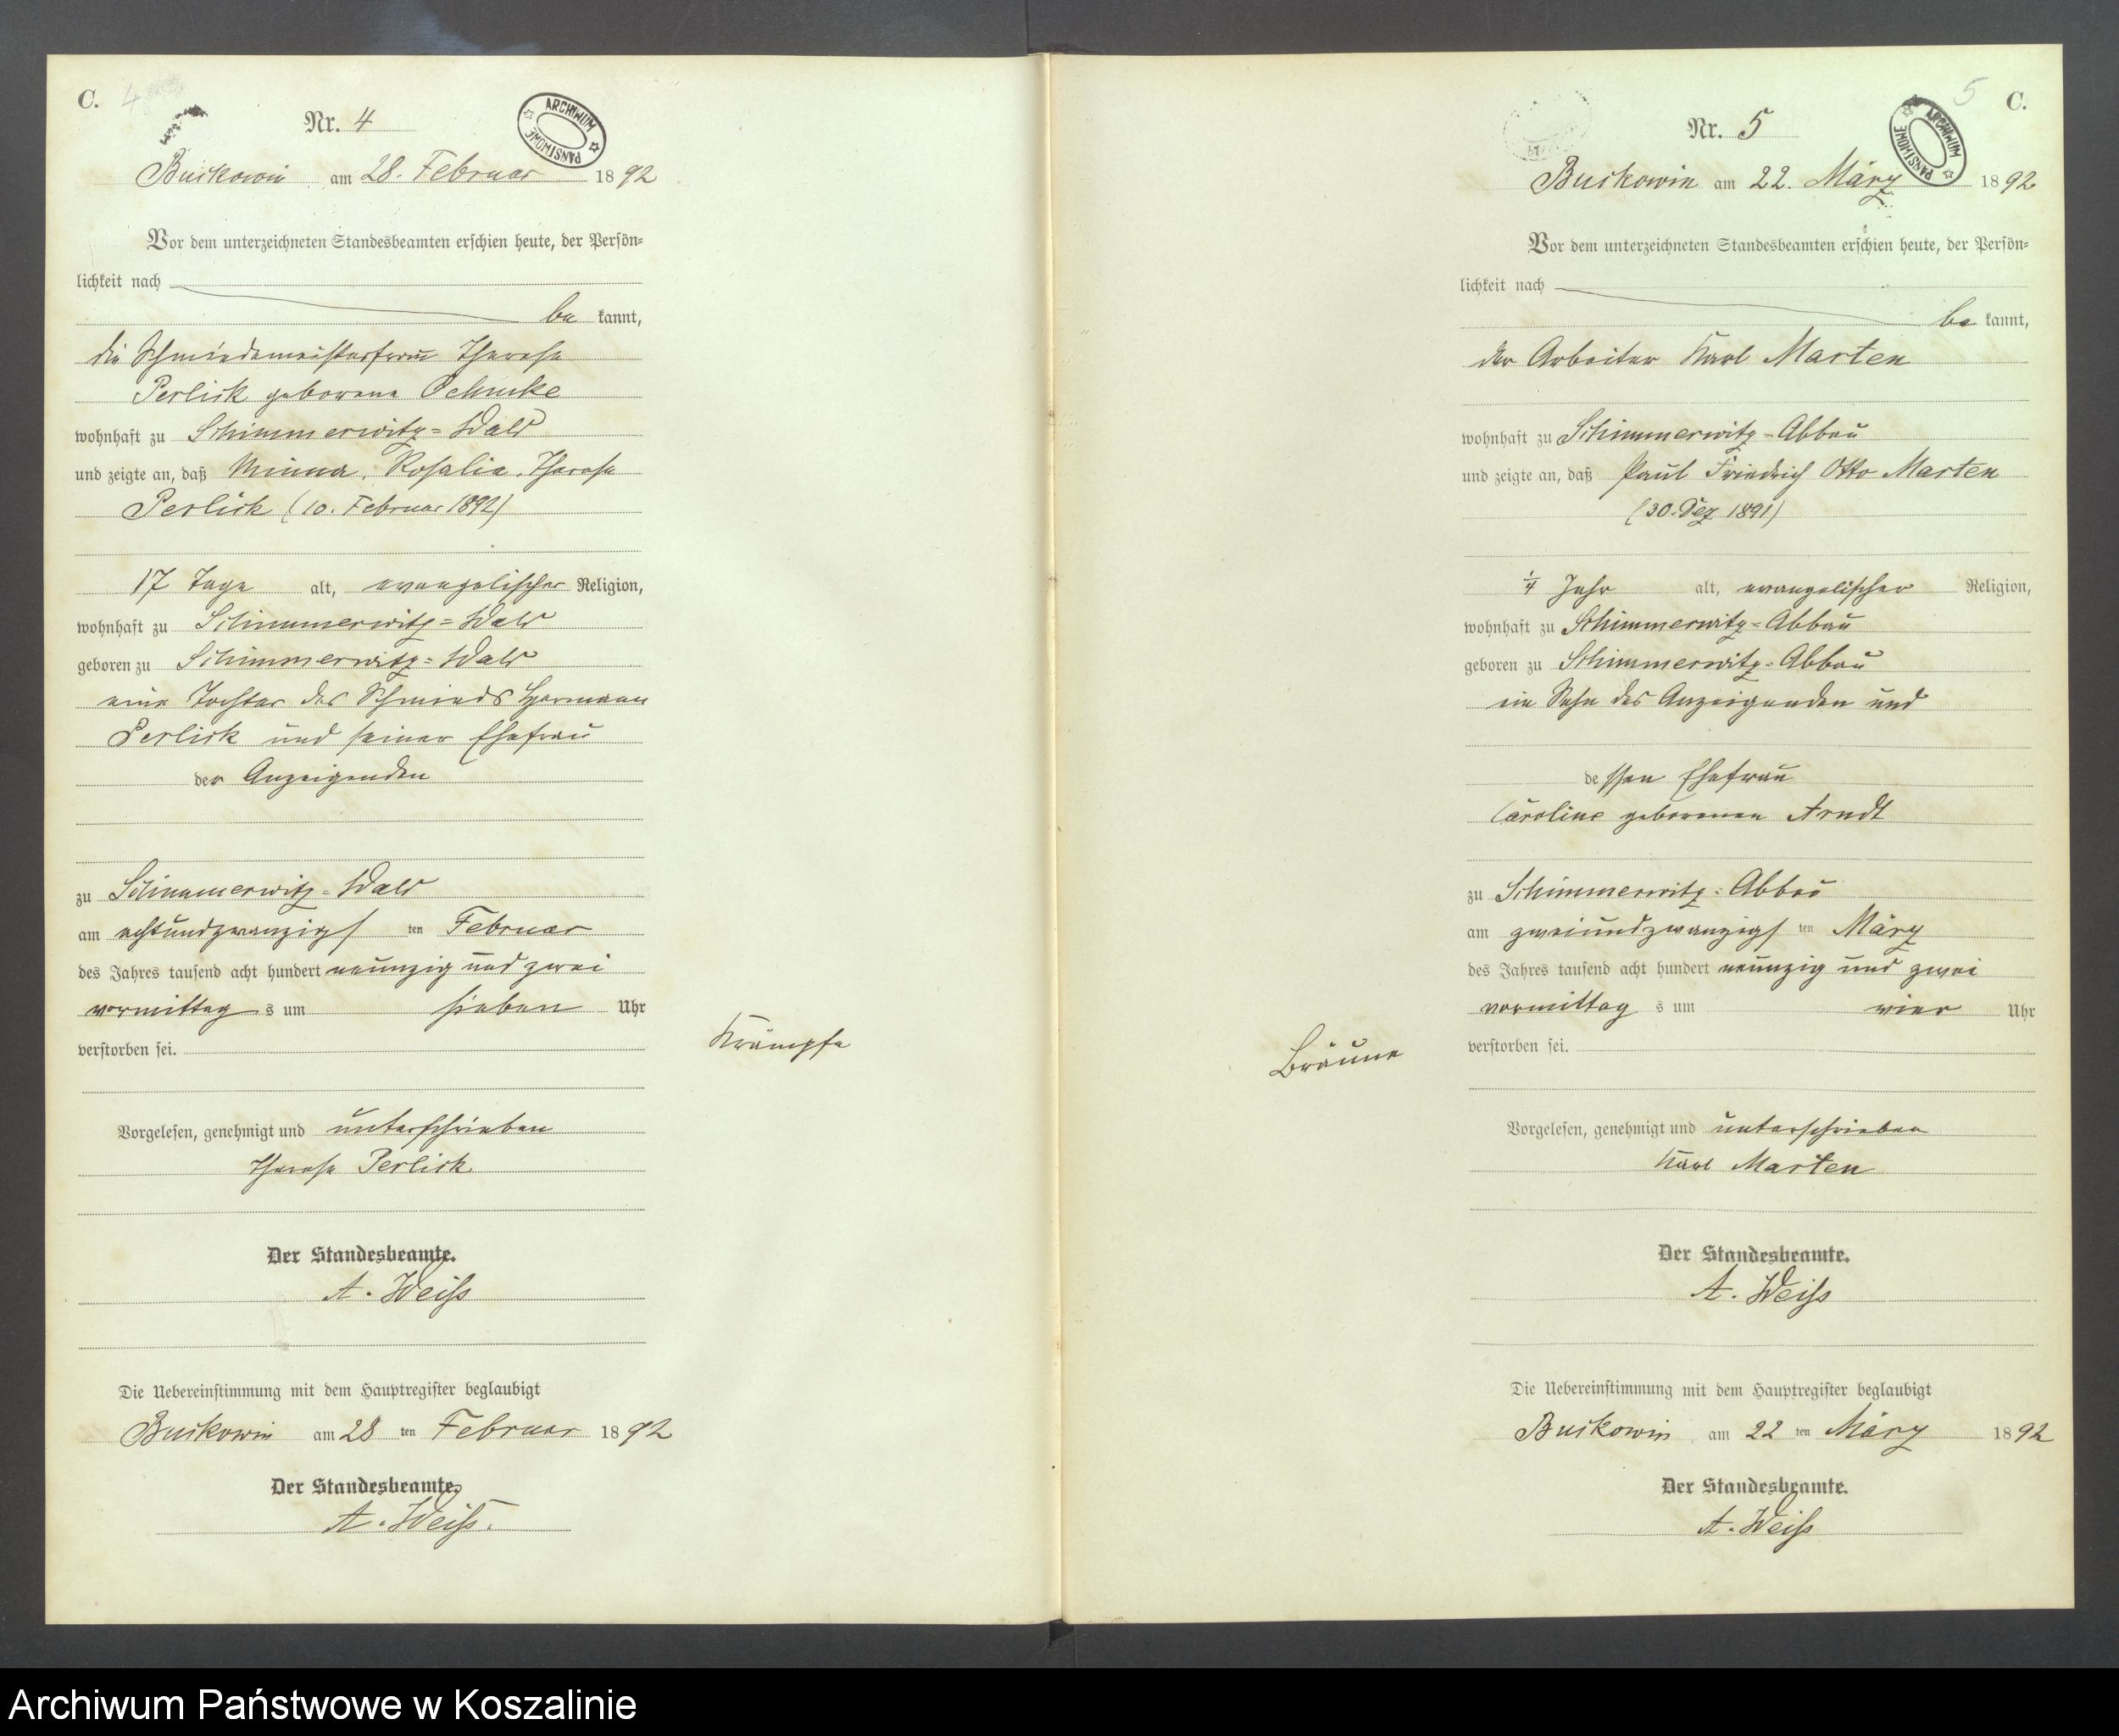 C. 4
Nr. 4
ARCHIWUM PAŃSTWOWE
Buckowin am 28. Februar 1892
Vor dem unterzeichneten Standesbeamten erschien heute, der Persön-
lichkeit nach
be kannt,
die Schmiedemeisterfrau Therese
Perlick geborene
wohnhaft zu Schimmerwitz-Wald
und zeigte an, daß Minna, Rosalie, Therese
Perlick (10. Februar 1892)
17 Tage alt, evangelischer Religion,
wohnhaft zu Schimmerwitz-Wald
geboren zu Schimmerwitz-Wald
eine Tochter des Schmieds Hermann
Perlick und seiner Ehefrau
der Anzeigenden
zu Schimmerwitz-Wald
am achtundzwanzigs ten Februar
des Jahres tausend acht hundert neunzig und zwei
vormittag s um sieben Uhr
verstorben sei.
Krämpfe
Vorgelesen, genehmigt und unterschrieben
Therese Perlick
Der Standesbeamte.
A. Weiß
Die Uebereinstimmung mit dem Hauptregister beglaubigt
Buckowin am 28 ten Februar 1892
Der Standesbeamte.
A. Weiß.
5 C.
Nr. 5
ARCHIWUM PAŃSTWOWE
Buckowin am 22. März 1892
Vor dem unterzeichneten Standesbeamten erschien heute, der Persön-
lichkeit nach
be kannt,
der Arbeiter Karl Marten
wohnhaft zu Schimmerwitz-Abbau
und zeigte an, daß Paul Friedrich Otto Marten
(30. Dez 1891)
¼ Jahr alt, evangelischer Religion,
wohnhaft zu Schimmerwitz-Abbau
geboren zu Schimmerwitz-Abbau
ein Sohn des Anzeigenden und
dessen Ehefrau
Caroline geborenen Arndt
zu Schimmerwitz-Abbau
am zweiundzwanzigs ten März
des Jahres tausend acht hundert neunzig und zwei
vormittag s um vier Uhr
verstorben sei.
Bräune
Vorgelesen, genehmigt und unterschrieben
Karl Marten
Der Standesbeamte.
A. Weiß
Die Uebereinstimmung mit dem Hauptregister beglaubigt
Buckowin am 22 ten März 1892
Der Standesbeamte.
A. Weiß
Archiwum Państwowe w Koszalinie